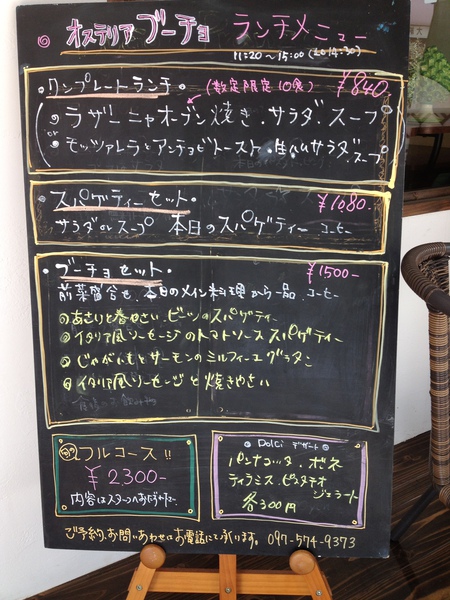 オステリア ブーチョ ランチメニュー
11:20～15:00 (Lo 14:30)
ワンプレートランチ (数定限定10食) ¥840-
ラザーニャオーブン焼き、サラダ、スープ
or
モッツァレラとアンチョビトースト、生ハムサラダ、スープ
スパゲティーセット ¥1080-
サラダorスープ 本日のスパゲティー コーヒー
ブーチョセット ¥1500-
前菜盛合せ、本日のメイン料理から一品、コーヒー
あさりと春やさい、ビーツのスパゲティー
イタリア風ソーセージのトマトソーススパゲティー
じゃがいもとサーモンのミルフィーユグラタン
イタリア風ソーセージと焼きやさい
フルコース!!
¥2300-
内容はスタッフへおたずね下さい
Dolci デザート
パンナコッタ、ボネ
ティラミス、ピスタチオ
ジェラート
各300円
ご予約、お問いあわせはお電話にて承ります。097-574-9373